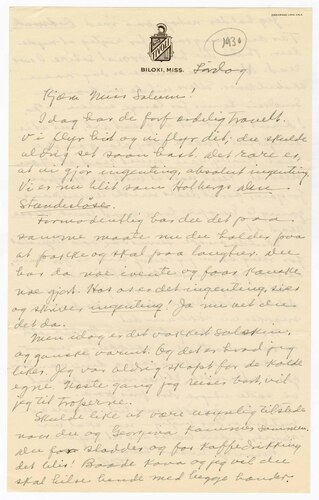 TIVOLI
BILOXI, MISS.
1930
Lördag
Kjære Miss Salum!
I dag har de forf ærdelig travelt.
Vi flyr hit og vi flyr dit, du skulde
aldrig set saan hast. Det rare es,
at vi gjør ingenting, absolut ingenting.
Vi er nu blit som Holbergs den
Stundeslöse.
Formodentlig har du det paa
samme maate nu du holder paa
at pakke og skal paa langreis. Du
har da noe ivente og faar kanske
noe gjort. Hos os er det ingenting, sies
og skrives ingenting! Ja nu vet du
det da.
Men idag er det vakkert solskin,
og ganske varmt. Og det er hvad jeg
likes. Jeg var aldrig skapt for de kolde
egne. Næste gang jeg reiser bort, vil
jeg til troperne.
Skulde like at være usynlig tilstede
naar du og Georgina kommer sammen.
Du for sladder og for kaffedrikking
det blir! Baade Kona og jeg vil du
skal hilse hende med begge hænder.